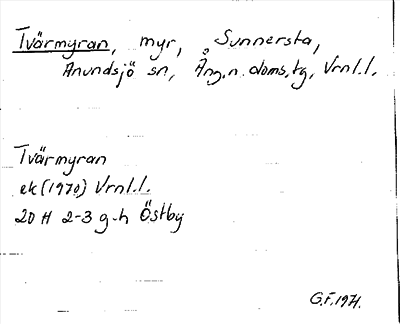 Tvärmyran, myr, Sunnersta,
Anundsjö sn, Ång.n.doms.tg, Vrnl.l.
Tvärmyran
ek (1970) Vrnl.l.
20 H 2-3 g-h Östby
G.F. 1971.